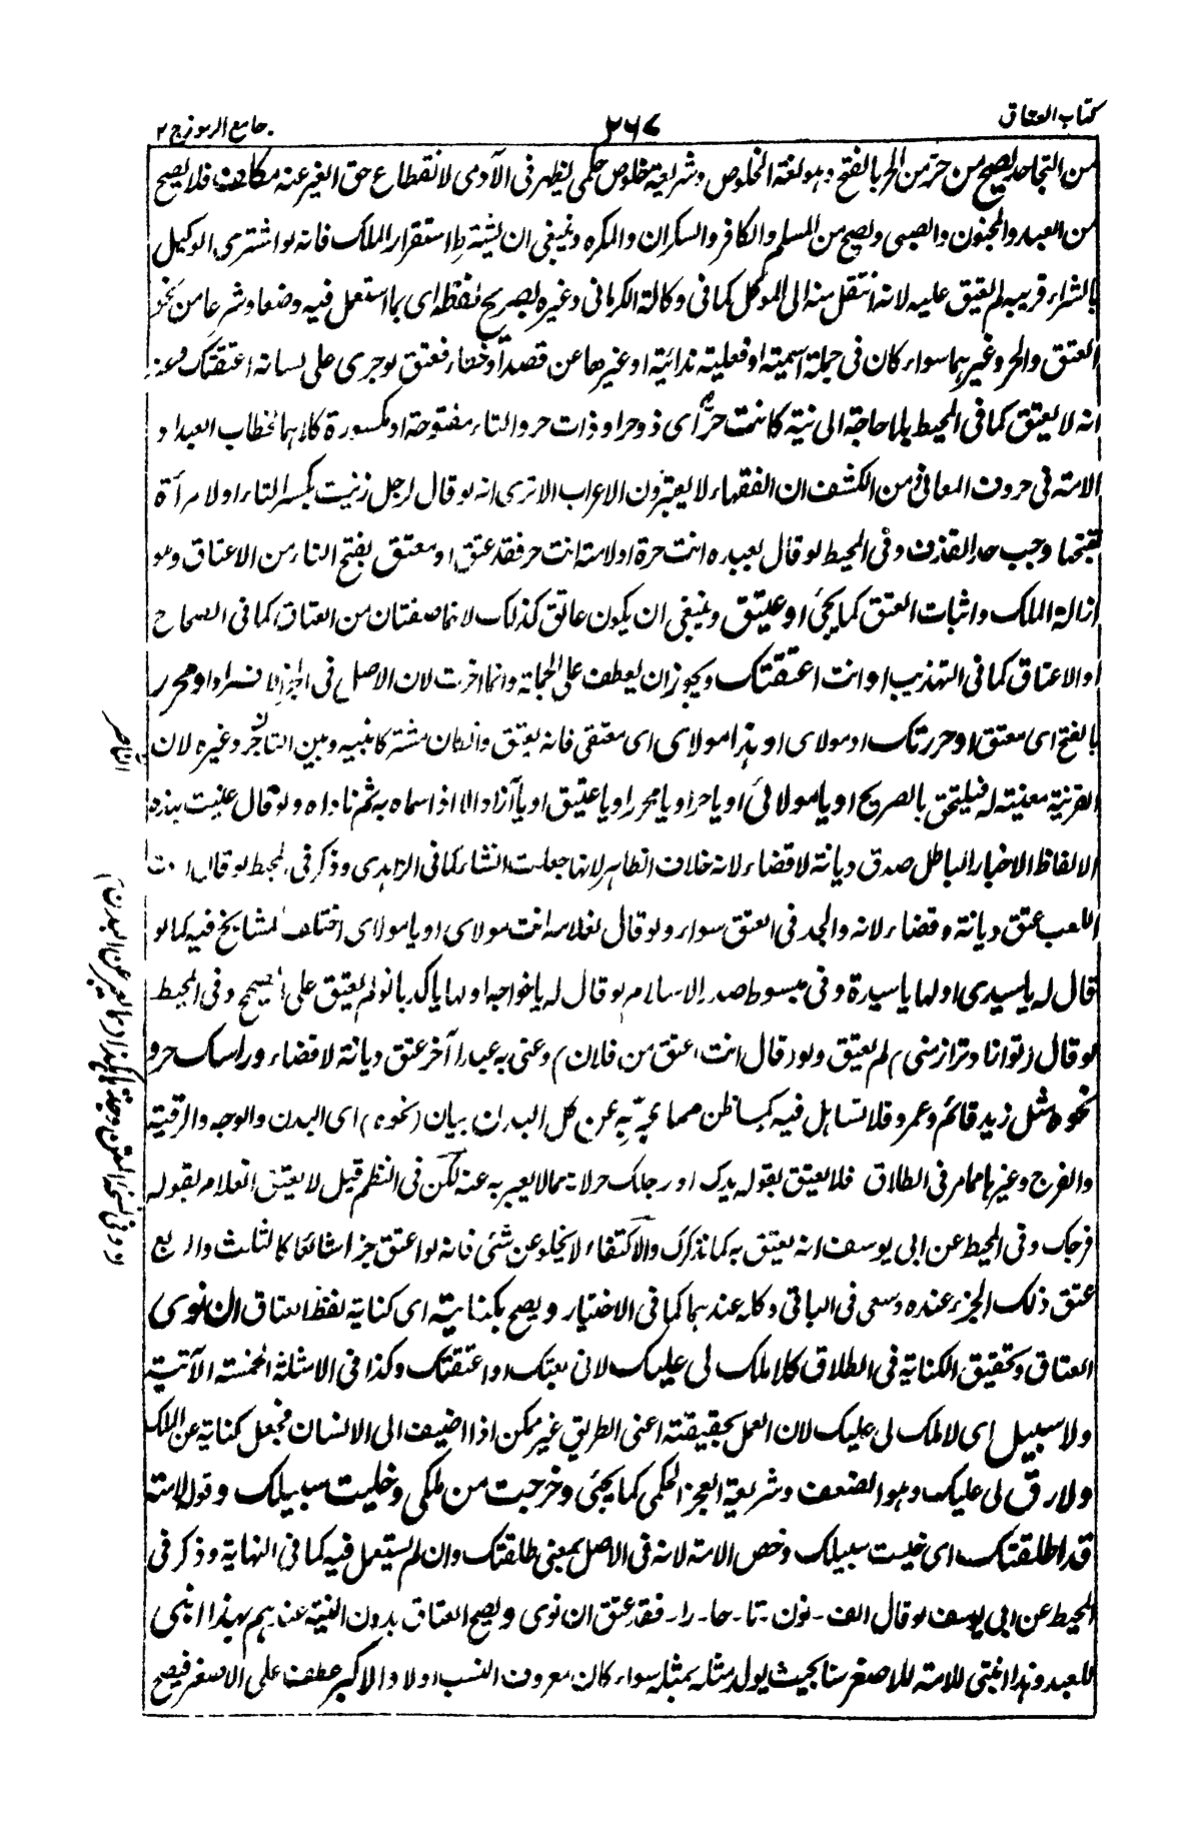 كتاب العتاق
٢٦٧
جامع الرموز ج ٢
من التجاحد يصح من حر من الحر بالفتح وهو لغة الخلوص وشريعة خلوص حكمى يظهر فى الآدمى لانقطاع حق الغير عنه مكلف فلا يصح
من العبد والمجنون والصبى ويصح من المسلم والكافر والسكران والمكره وينبغى ان يشترط استقرار الملك فانه لو اشترى الوكيل
بالشراء قريبه لم يعتق عليه لانه انتقل منه الى الموكل كما فى وكالة الكرمانى وغيره بصريح لفظه اى بما استعمل فيه وضعا وشرعا من نحو
العتق والحر وغيرهما سواء كان فى جملة اسمية او فعلية ندائية او غيرها عن قصد او خطاء فعتق لو جرى على لسانه اعتقتك وعنه
انه لا يعتق كما فى المحيط بلا حاجة الى نية كانت حر اى ذو حر او ذات حر والتاء مفتوحة او مكسورة كلاهما لخطاب العبد او
الامة فى حروف المعانى من الكشف ان الفقهاء لا يعتبرون الاعراب الا ترى انه لو قال لرجل زنيت بكسر التاء او لامرأة
بفتحها وجب حد القذف وفى المحيط لو قال لعبده انت حرة او لامته انت حر فقد عتق او معتق بفتح التاء من الاعتاق وهو
ازالة الملك واثبات العتق كما يجئ او عتيق وينبغى ان يكون عاتق كذلك لانهما صفتان من العتاق كما فى الصحاح
او الاعتاق كما فى التهذيب او انت اعتقتك ويجوز ان يعطف على الجملة وانما اخرت لان الاصل فى الخبر الافراد او محرر
بالفتح اى معتق او حررتك او مولاى او هذا مولاى اى معتقى فانه يعتق وان كان مشتركا بينه وبين الناصر وغيره لان
القرينة معينة له فيلتحق بالصريح او يا مولائى او يا حر او يا محرر او يا عتيق او يا آزاد الا اذا سماه به ثم ناداه ولو قال عنيت بهذه
الالفاظ الاخبار الباطل صدق ديانة لا قضاء لانه خلاف الظاهر لانها جعلت انشاء كما فى الزاهدى وذكر فى المحيط لو قال اردت
اللعب عتق ديانة وقضاء لانه والجد فى العتق سواء ولو قال لغلامه انت مولاى او يا مولاى اختلف المشايخ فيه كما لو
قال له يا سيدى او لها يا سيدة وفى مبسوط صدر الاسلام لو قال له يا خواجه او لها يا كدبانو لم يعتق على الصحيح وفى المحيط
لو قال تو اناد تر از منى لم يعتق ولو قال انت اعتق من فلان وعنى به عبدا آخر عتق ديانة لا قضاء وراسك حر و
نحوه مثل زيد قائم وعمرو فلا تساهل فيه كما ظن مما يعبر به عن كل البدن بيان (نحوه) اى البدن والوجه والرقبة
والفرج وغيرها مما مر فى الطلاق فلا يعتق بقوله يدك او رجلك حر لانه مما لا يعبر به عنه لكن فى النظم قيل لا يعتق الغلام بقوله
فرجك وفى المحيط عن ابى يوسف انه يعتق به كما نذكرك والاكتفاء لا يخلو عن شئ فانه لو اعتق جزءا شائعا كالثلث والربع
عتق ذلك الجزء عنده وسعى فى الباقى وكله عندهما كما فى الاختيار ويصح بكنايته اى كناية لفظ العتاق ان نوى
العتاق وتحقيق الكناية فى الطلاق كلا ملك لى عليك لانى بعتك او اعتقتك وكذا فى الامثلة الخمسة الآتية
ولا سبيل اى لا ملك لى عليك لان العمل بحقيقته اعنى الطريق غير ممكن اذا اضيف الى الانسان فجعل كناية عن الملك
ولا رق لى عليك وهو الضعف وشريعة العجز الحكمى كما يجئ وخرجت من ملكى وخليت سبيلك وقوله لامته
قد اطلقتك اى خليت سبيلك وخص الامة لانه فى الاصل بمعنى طلقتك وان لم يستعمل فيه كما فى النهاية وذكر فى
المحيط عن ابى يوسف لو قال الف - نون - تا - حا - را - فقد عتق ان نوى ويصح العتاق بدون النية عندهم بهذا ابنى
للعبد وهذا ابنتى للامة للاصغر سنا بحيث يولد مثله بمثله سواء كان معروف النسب اولا والاكبر عطف على الاصغر فيصح
الناصر